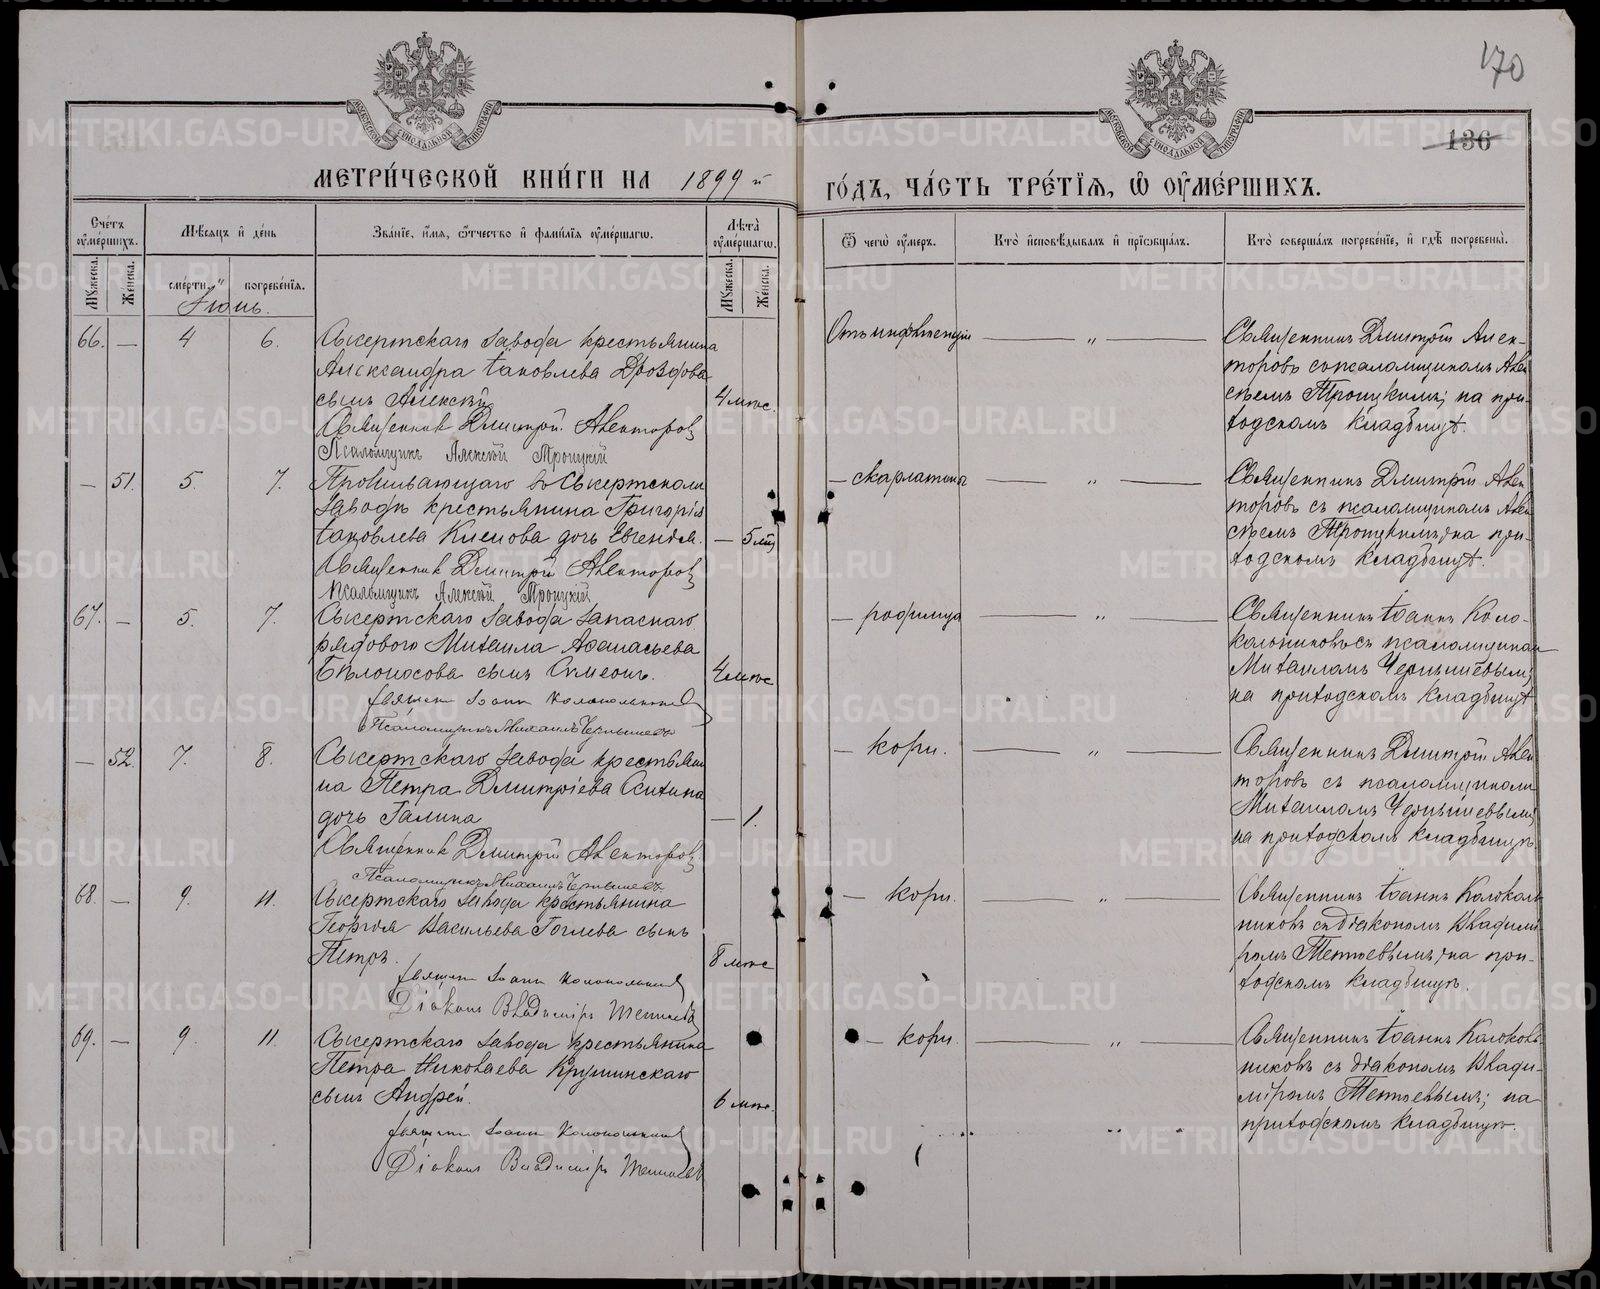 170
136
МЕТРИ́ЧЕСКОЙ КНИ́ГИ НА 1899 й
ГО́ДЪ, ЧА́СТЬ ТРЕ́ТІѦ, Ѿ ОУМЕ́РШИХЪ.
Сче́тъ оуме́ршихъ.
Мѣ́сяцъ и де́нь
Зва́ніе, и́мя, ѻ́тчество и фами́лія оуме́ршагѡ.
Лѣта̀ оуме́ршагѡ.
Ѿ чегѡ̀ оу́меръ.
Кто̀ и҆сповѣ́дывалъ и прїѡбща́лъ.
Кто̀ соверша́лъ погребе́ніе, и гдѣ̀ погребены̀.
Му́жеска. Же́нска. сме́рти. погребе́нія. Му́жеска. Же́нска.
Іюнь.
66. — 4 6. Сысертскаго завода крестьянина
Александра Іаковлева Дроздова
сынъ Алексѣй 4 мѣс.
Священник Дмитрій Авекторов
Псаломщикъ Алексѣй Троицкій
Отъ инфлюенціи — „ —
Священникъ Дмитрій Авек-
торовъ съ псаломщикомъ Алек
сѣемъ Троицкимъ; на при-
ходскомъ кладбищѣ.
— 51. 5. 7. Проживающаго въ Сысертскомъ
заводѣ крестьянина Григорія
Іаковлева дочь Евгенія. — 5 мѣс
Священник Дмитрій Авекторов
Псаломщикъ Алексѣй Троицкій
— скарлатина — „ —
Священникъ Дмитрій Авек
торовъ съ псаломщикомъ Алек
сѣемъ Троицкимъ; на при-
ходскомъ кладбищѣ.
67. — 5. 7. Сысертскаго завода запаснаго
рядового Михаила Аѳанасьева
Бѣлоносова сынъ Симеонъ. 4 мѣс
Священ Іоанн Колокольников
Псаломщикъ Михаилъ Чернышевъ
— родимца — „ —
Священникъ Іоаннъ Коло-
кольниковъ съ псаломщиком
Михаиломъ Чернышевымъ;
на приходскомъ кладбищѣ
— 52. 7. 8. Сысертскаго завода крестьяни
на Петра Дмитріева
дочь Галина — 1.
Священник Дмитрій Авекторов
Псаломщикъ Михаилъ Чернышевъ
— кори. — „ —
Священникъ Дмитрій Авек
торовъ съ псаломщикомъ
Михаиломъ Чернышевымъ;
на приходскомъ кладбищѣ.
68. — 9. 11. Сысертскаго завода крестьянина
Георгія Васильева сынъ
Петръ. 8 мѣс
Священ Іоанн Колокольников
Діаконъ Владиміръ
— кори. — „ —
Священникъ Іоаннъ Колоколь
никовъ съ діакономъ Владими
ромъ на при-
ходскомъ кладбищѣ.
69. — 9. 11. Сысертскаго завода крестьянина
Петра Николаева
сынъ Андрей. 6 мѣс.
Священ Іоанн Колокольников
Діаконъ Владиміръ
— кори. — „ —
Священникъ Іоаннъ Колоколь
никовъ съ діакономъ Влади-
міромъ на
приходскомъ кладбищѣ.
METRIKI.GASO-URAL.RU